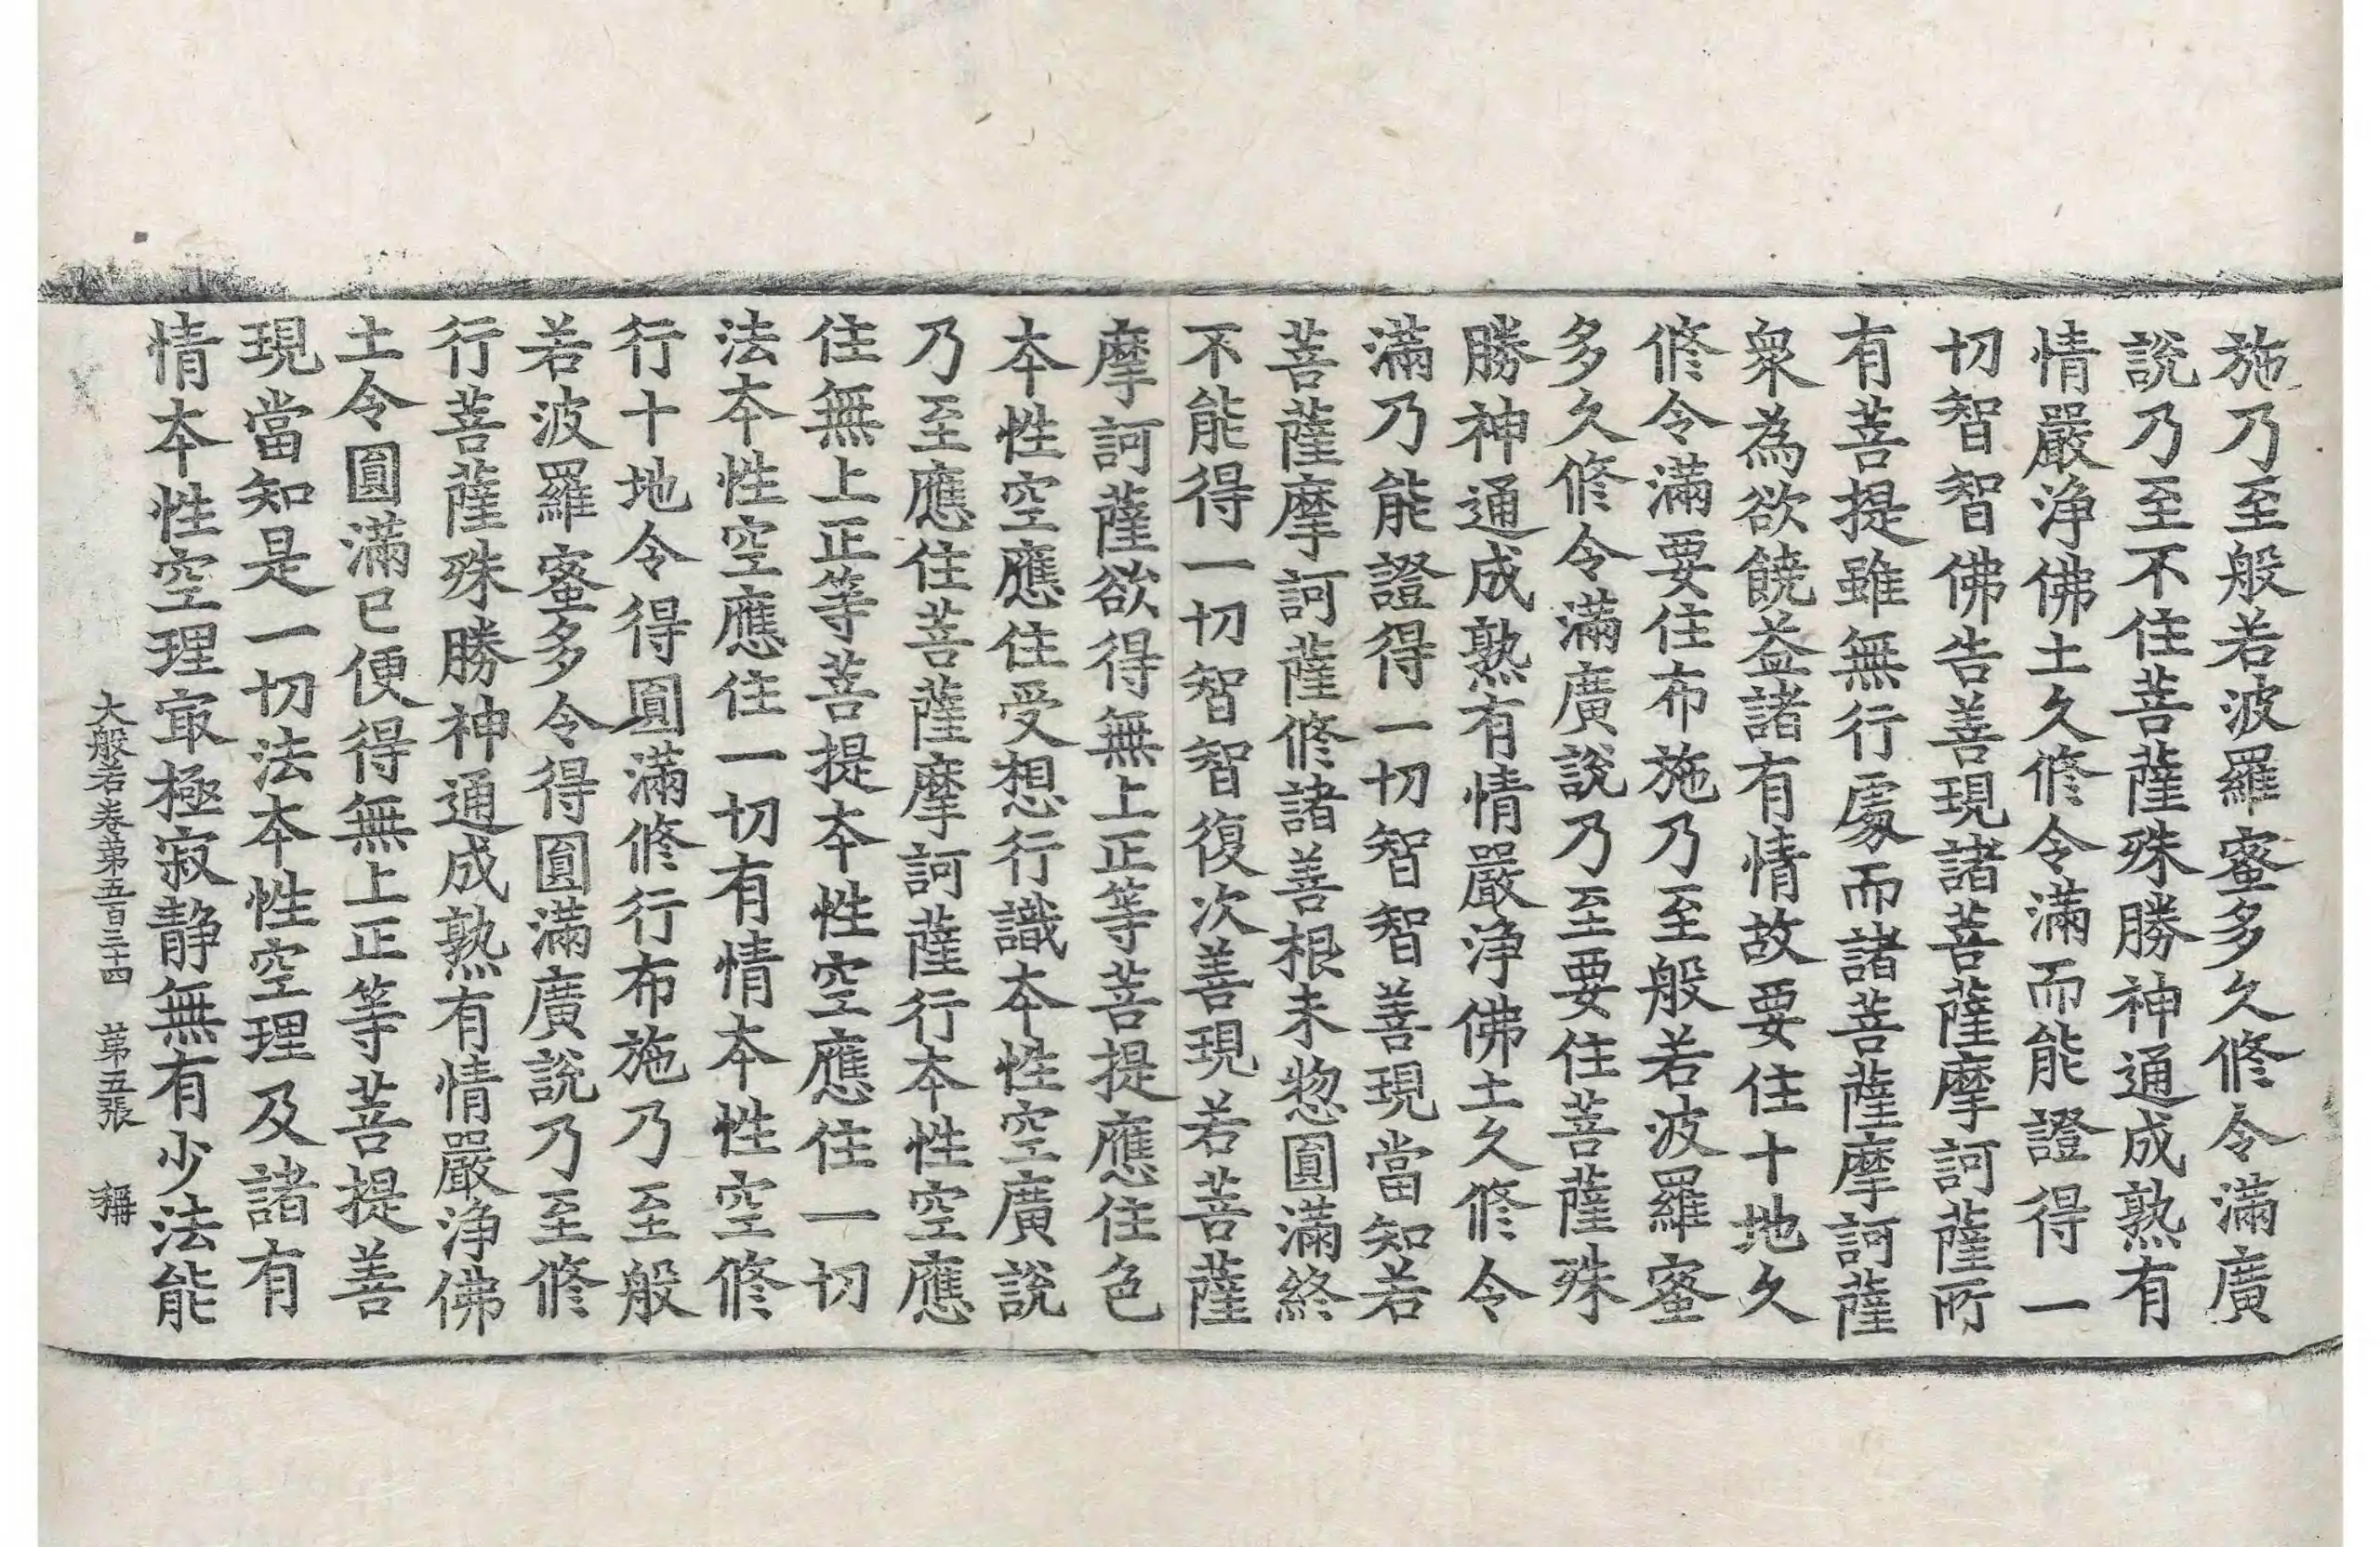 施乃至般若波羅蜜多久修令滿廣
說乃至不住菩薩殊勝神通成熟有
情嚴淨佛土久修令滿而能證得一
切智智佛告善現諸菩薩摩訶薩所
有菩提雖無行處而諸菩薩摩訶薩
衆為欲饒益諸有情故要住十地久
修令滿要住布施乃至般若波羅蜜
多久修令滿廣說乃至要住菩薩殊
勝神通成熟有情嚴淨佛土久修令
滿乃能證得一切智智善現當知若
菩薩摩訶薩修諸善根未惣圓滿終
不能得一切智智復次善現若菩薩
摩訶薩欲得無上正等菩提應住色
本性空應住受想行識本性空廣說
乃至應住菩薩摩訶薩行本性空應
住無上正等菩提本性空應住一切
法本性空應住一切有情本性空修
行十地令得圓滿修行布施乃至般
若波羅蜜多令得圓滿廣說乃至修
行菩薩殊勝神通成熟有情嚴淨佛
土令圓滿已便得無上正等菩提善
現當知是一切法本性空理及諸有
情本性空理寂極寂靜無有少法能
大般若卷第五百三十四 第五張 稱